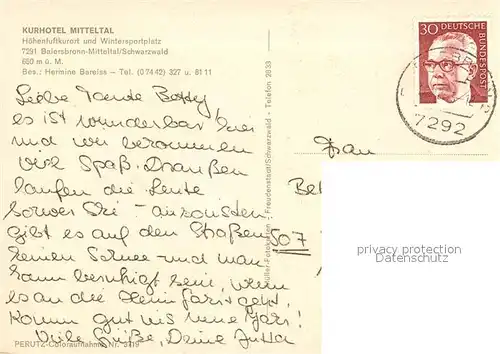 KURHOTEL MITTELTAL
Höhenluftkurort und Wintersportplatz
7291 Baiersbronn-Mitteltal/Schwarzwald
650 m ü. M.
Bes.: Hermine Bareiss – Tel. (0 74 42) 327 u. 81 11
30 DEUTSCHE BUNDESPOST
7292
Liebe Tante Betty!
es ist wunderbar hier
und wir bekommen
viel Spaß. Draußen
laufen die Leute
Ski - ansonsten
gibt es auf den Straßen
keinen Schnee und man
kann beruhigt sein, wenn
es an die Heimfahrt geht.
Komm gut ins neue Jahr!
Viele Grüße, Deine Jutta
Frau
507
privacy protection
www.oldthing.de
Freudenstadt/Schwarzwald - Telefon 2633
PERUTZ-Coloraufnahme Nr. 3719